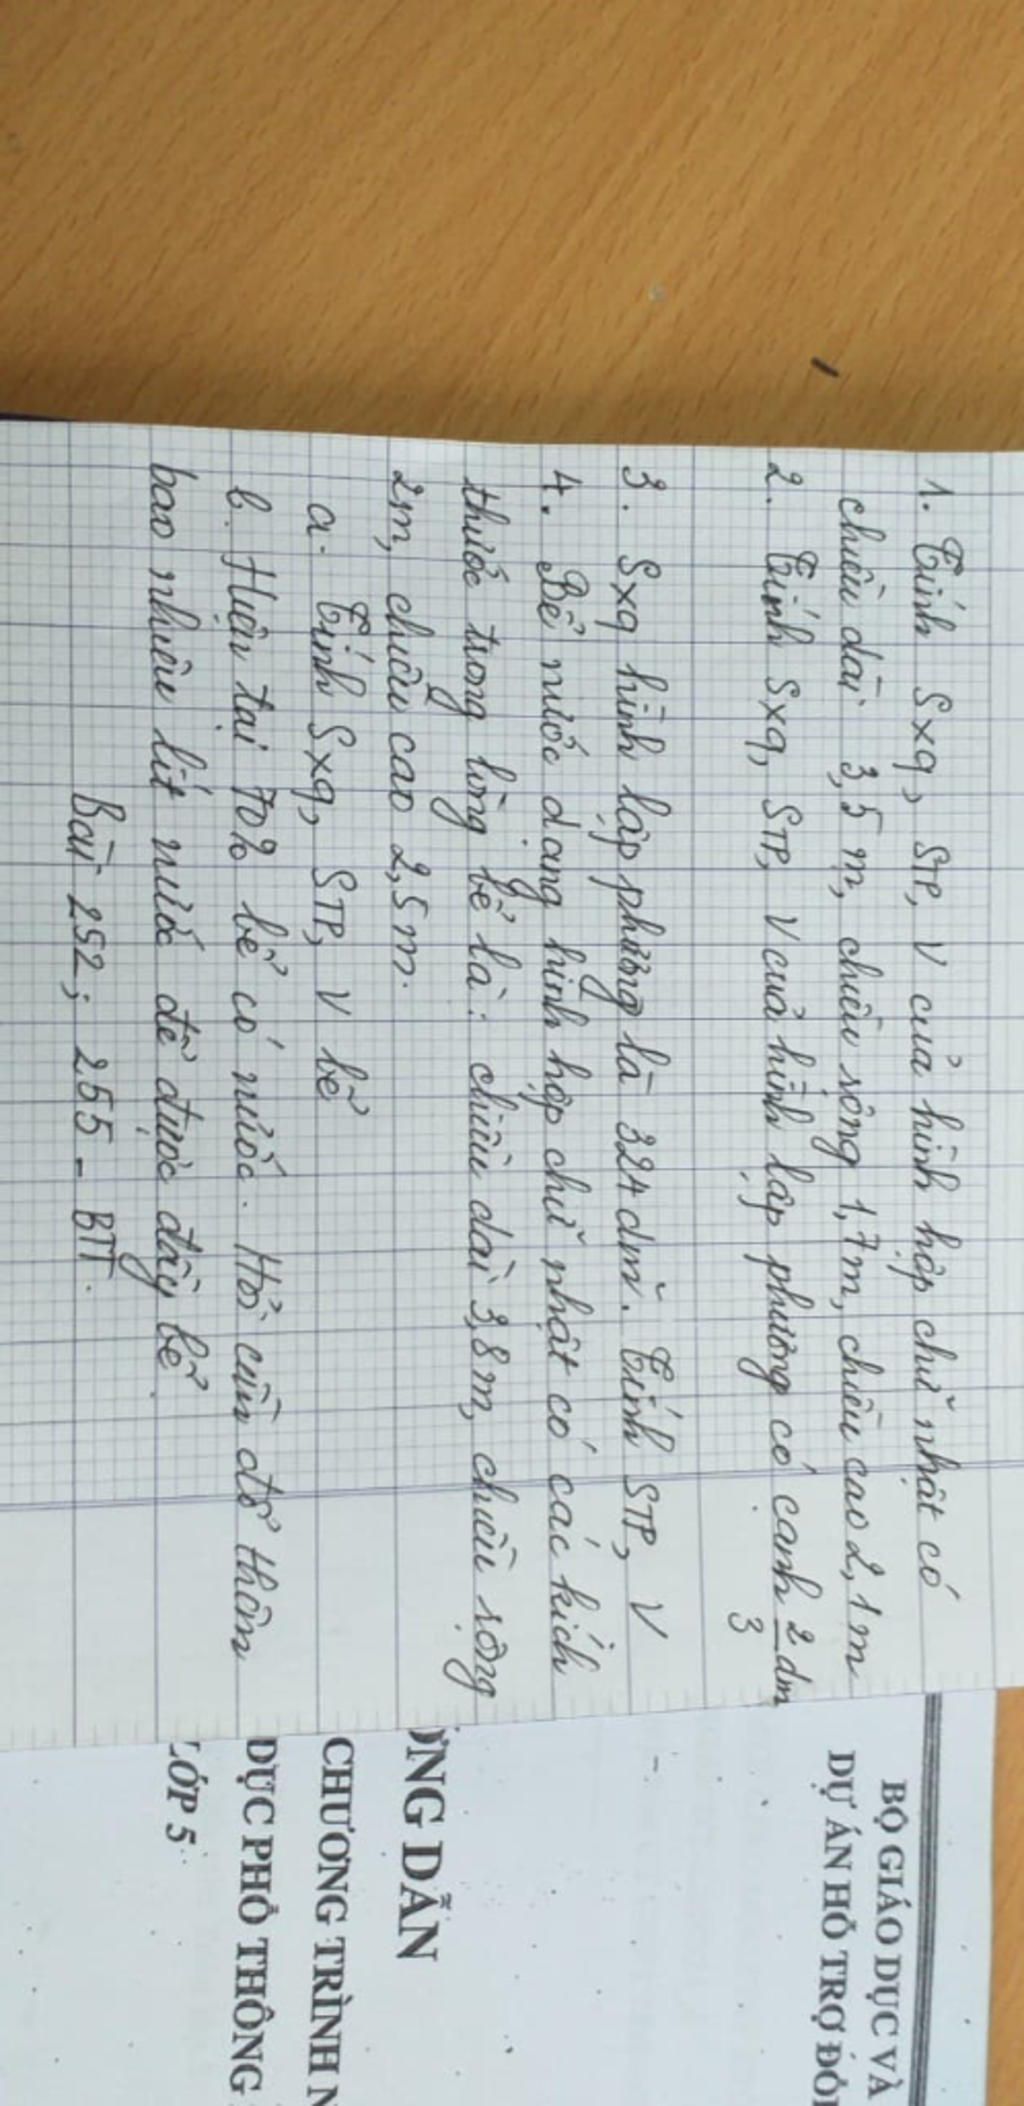 1. Tính Sxq, STP, V của hình hộp chữ nhật có
chiều dài 3,5 m, chiều rộng 1,7m, chiều cao 2,1m
2. Tính Sxq, STP, V của hình lập phương có cạnh 2/3 dm
3. Sxq hình lập phương là 324 dm². Tính STP, V
4. Bể nước dạng hình hộp chữ nhật có các kích
thước trong lòng bể là: chiều dài 3,8m, chiều rộng
2m, chiều cao 2,5m.
a. Tính Sxq, STP, V bể
b. Hiện tại 70% bể có nước. Hỏi cần đổ thêm
bao nhiêu lít nước để được đầy bể.
Bài 252; 255 - BTT.
BỘ GIÁO DỤC VÀ
DỰ ÁN HỖ TRỢ ĐỔI
ỚNG DẪN
CHƯƠNG TRÌNH N
DỤC PHỔ THÔNG
LỚP 5